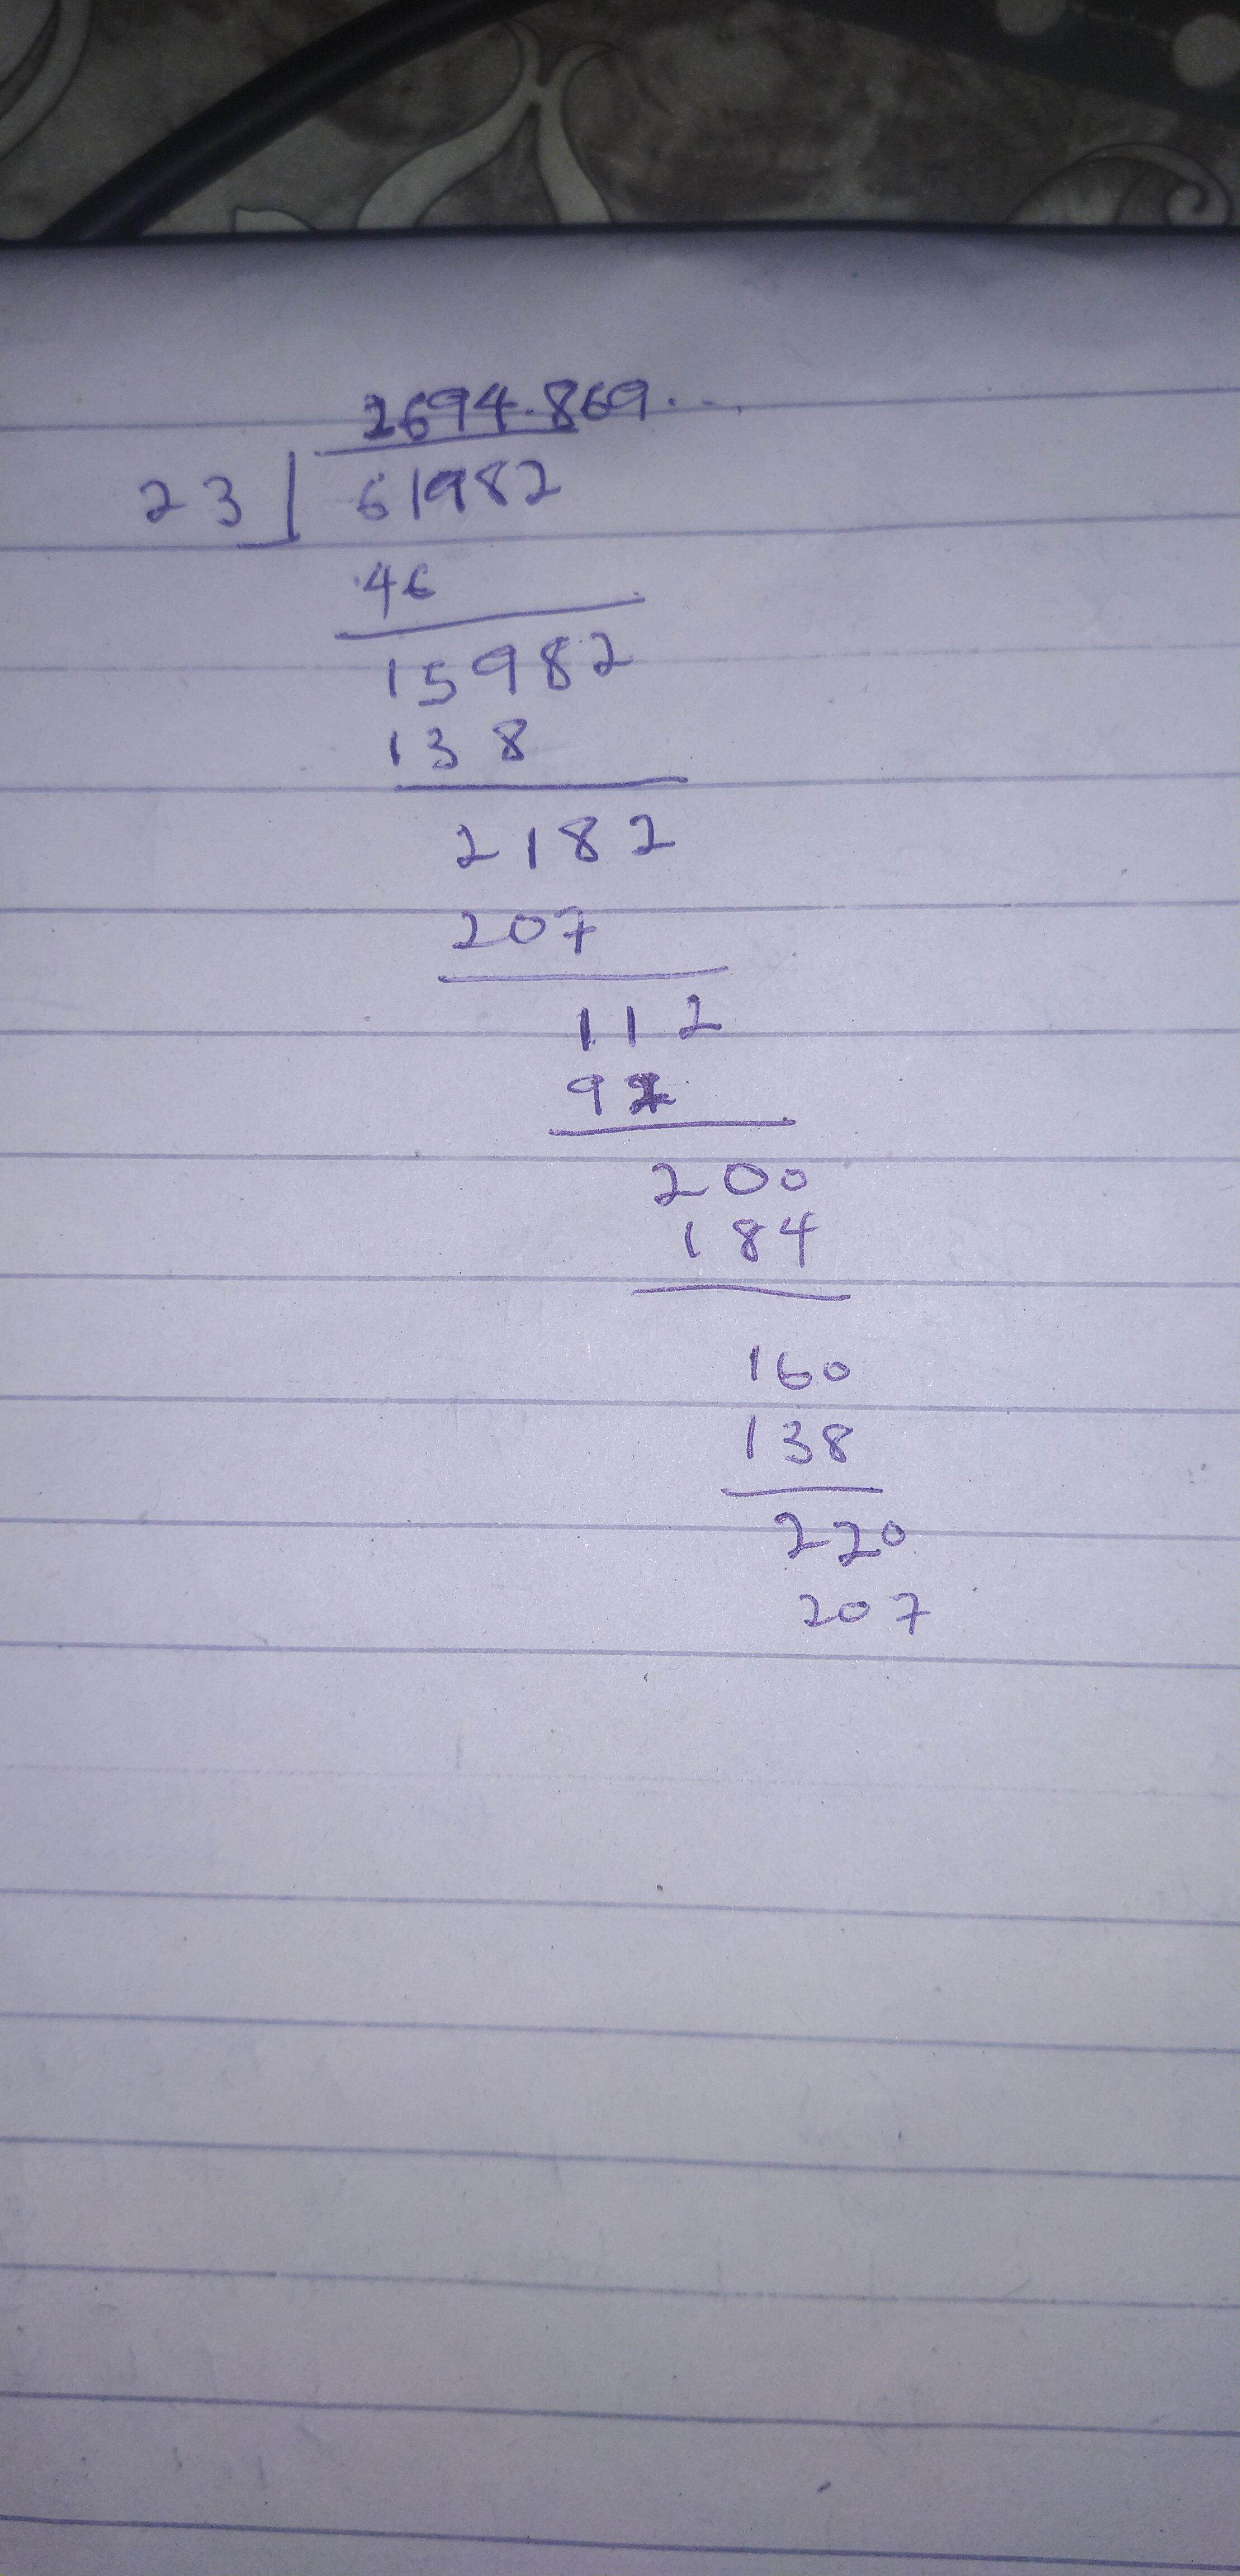 2694.869...
23 61982
46
15982
138
2182
207
112
92
200
184
160
138
220
207